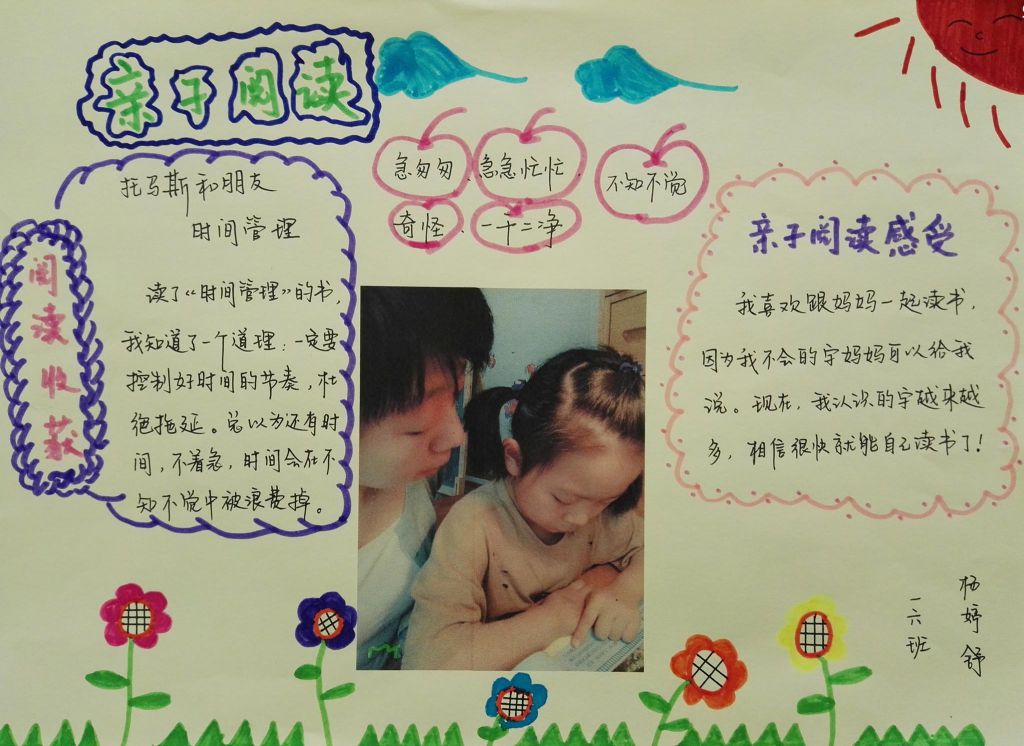 亲子阅读
急匆匆、急急忙忙、
不知不觉
奇怪、一干二净
阅读收获
托马斯和朋友
时间管理
读了“时间管理”的书,
我知道了一个道理:一定要
控制好时间的节奏,杜
绝拖延。总以为还有时
间,不着急,时间会在不
知不觉中被浪费掉。
亲子阅读感受
我喜欢跟妈妈一起读书,
因为我不会的字妈妈可以给我
说。现在,我认识的字越来越
多,相信很快就能自己读书了!
一六班
杨婷舒